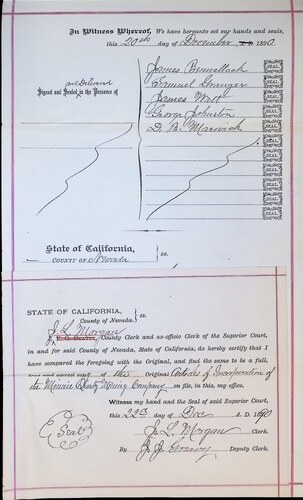 In Witness Whereof, We have hereunto set our hands and seals,
this 20th day of December 1890
James Bennallack SEAL
Samuel Granger SEAL
James Watt SEAL
George Johnston SEAL
D. B. Marwick SEAL
SEAL
SEAL
SEAL
SEAL
SEAL
and Delivered
Signed and Sealed in the Presence of
State of California,
COUNTY OF Nevada ss.
STATE OF CALIFORNIA,
County of Nevada. ss.
J. L. Morgan
County Clerk and ex-officio Clerk of the Superior Court,
in and for said County of Nevada, State of California, do hereby certify that I
have compared the foregoing with the Original, and find the same to be a full,
true and correct copy of the Original Articles of Incorporation of
the Quartz Mining Company on file, in this, my office.
Witness my hand and the Seal of said Superior Court,
this 22d day of Dec A. D. 1890
Seal
J. L. Morgan Clerk.
By Deputy Clerk.